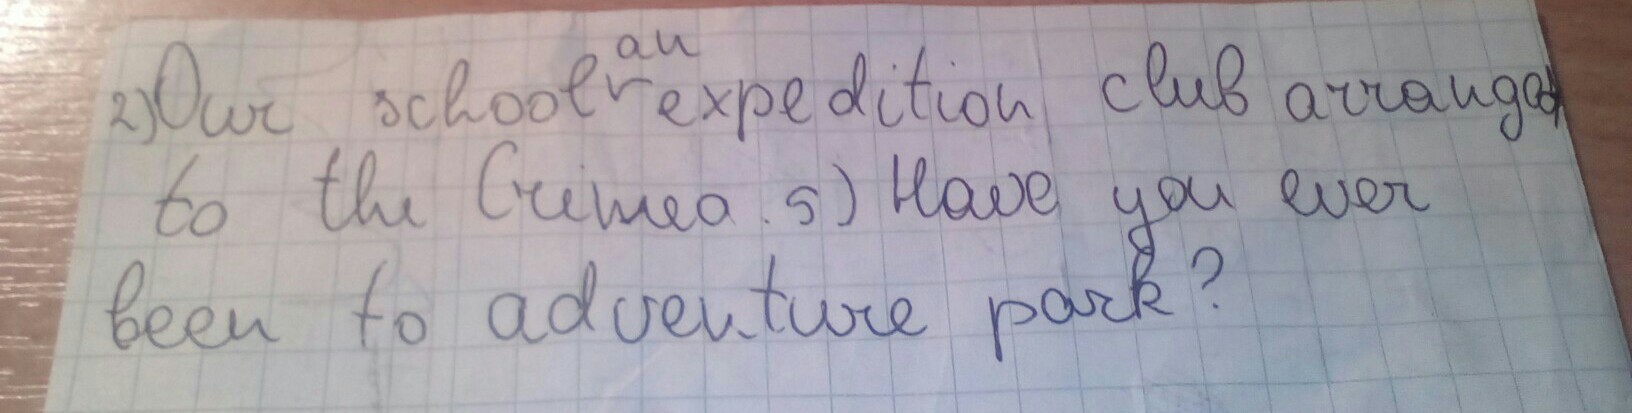 2) Our school an expedition club arranged
to the Crimea. 5) Have you ever
been to adventure park?